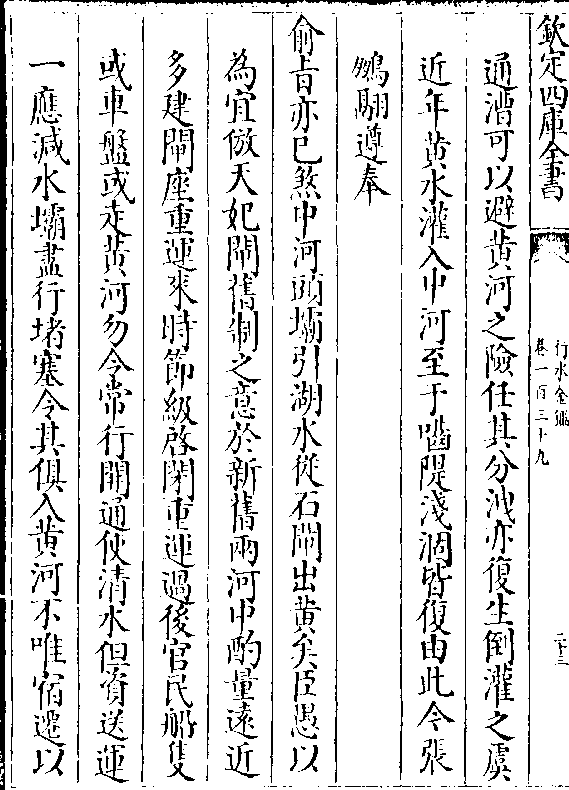 欽定四庫全書
行水金鑑
卷一百三十九
二十三
通漕可以避黄河之險任其分洩亦復生倒灌之虞
近年黄水灌入中河至于嚙隄淺涸皆復由此今張
鵬翮遵奉
俞旨亦已煞中河頭壩引湖水從石閘出黄矣臣愚以
為宜倣天妃閘舊制之意於新舊兩河中酌量遠近
多建閘座重運來時節級啓閉重運過後官民船隻
或車盤或走黄河勿令常行開通使清水但資送運
一應減水壩盡行堵塞令其俱入黄河不唯宿遷以